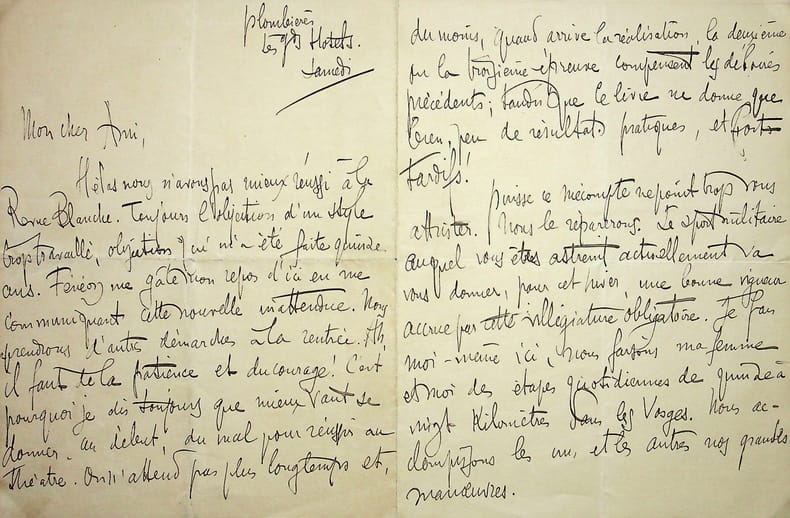 Plombières
Les gds Hotels.
Samedi
Mon cher Ami,
Hélas nous n'avons pas mieux réussi à la
Revue Blanche. Toujours l'objection d'un style
trop travaillé, objection qui m'a été faite quinze
ans. Fénéon me gâte mon repos d'ici en me
communiquant cette nouvelle inattendue. Nous
prendrons d'autres démarches à la rentrée. Ah,
il faut de la patience et du courage! C'est
pourquoi je dis toujours que mieux vaut se
donner, au début, du mal pour réussir au
théatre. On n'attend pas plus longtemps et,
du moins, quand arrive la réalisation, la deuxième
ou la troisième épreuve compensent les déboires
précédents; tandis que le livre ne donne que
bien peu de résultats pratiques, et fort
tardifs!
Puisse ce mécompte ne point trop vous
attrister. Nous le réparerons. Le sport militaire
auquel vous êtes astreint actuellement va
vous donner, pour cet hiver, une bonne vigueur
accrue par cette villégiature obligatoire. Je fais
moi-même ici, nous faisons ma femme
et moi des étapes quotidiennes de quinze à
vingt Kilomètres dans les Vosges. Nous ac-
complissons les uns et les autres nos grandes
manœuvres.